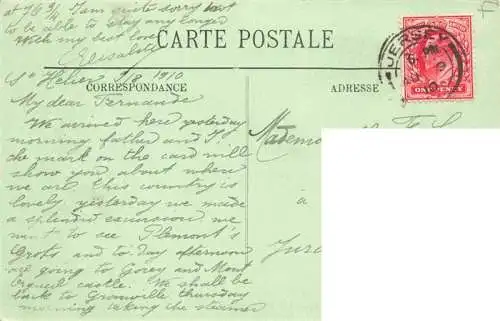 at 7h 3/4. I am quite sorry not
to be able to stay any longer
With my best love
Elisabeth
CARTE POSTALE
JERSEY
ONE PENNY
St Helier 9/8 1910
CORRESPONDANCE
ADRESSE
My dear Fernande
We arrived here yesterday
morning father and I;
the mark on the card will
show you about where
we are. This country is
lovely, yesterday we made
a splendid excursion we
went to see Plemont's
Grots and to day afternoon
are going to Gorey and Mont
Orgueil castle. We shall be
back to Granville thursday
morning taking the steamer
Mademo
à